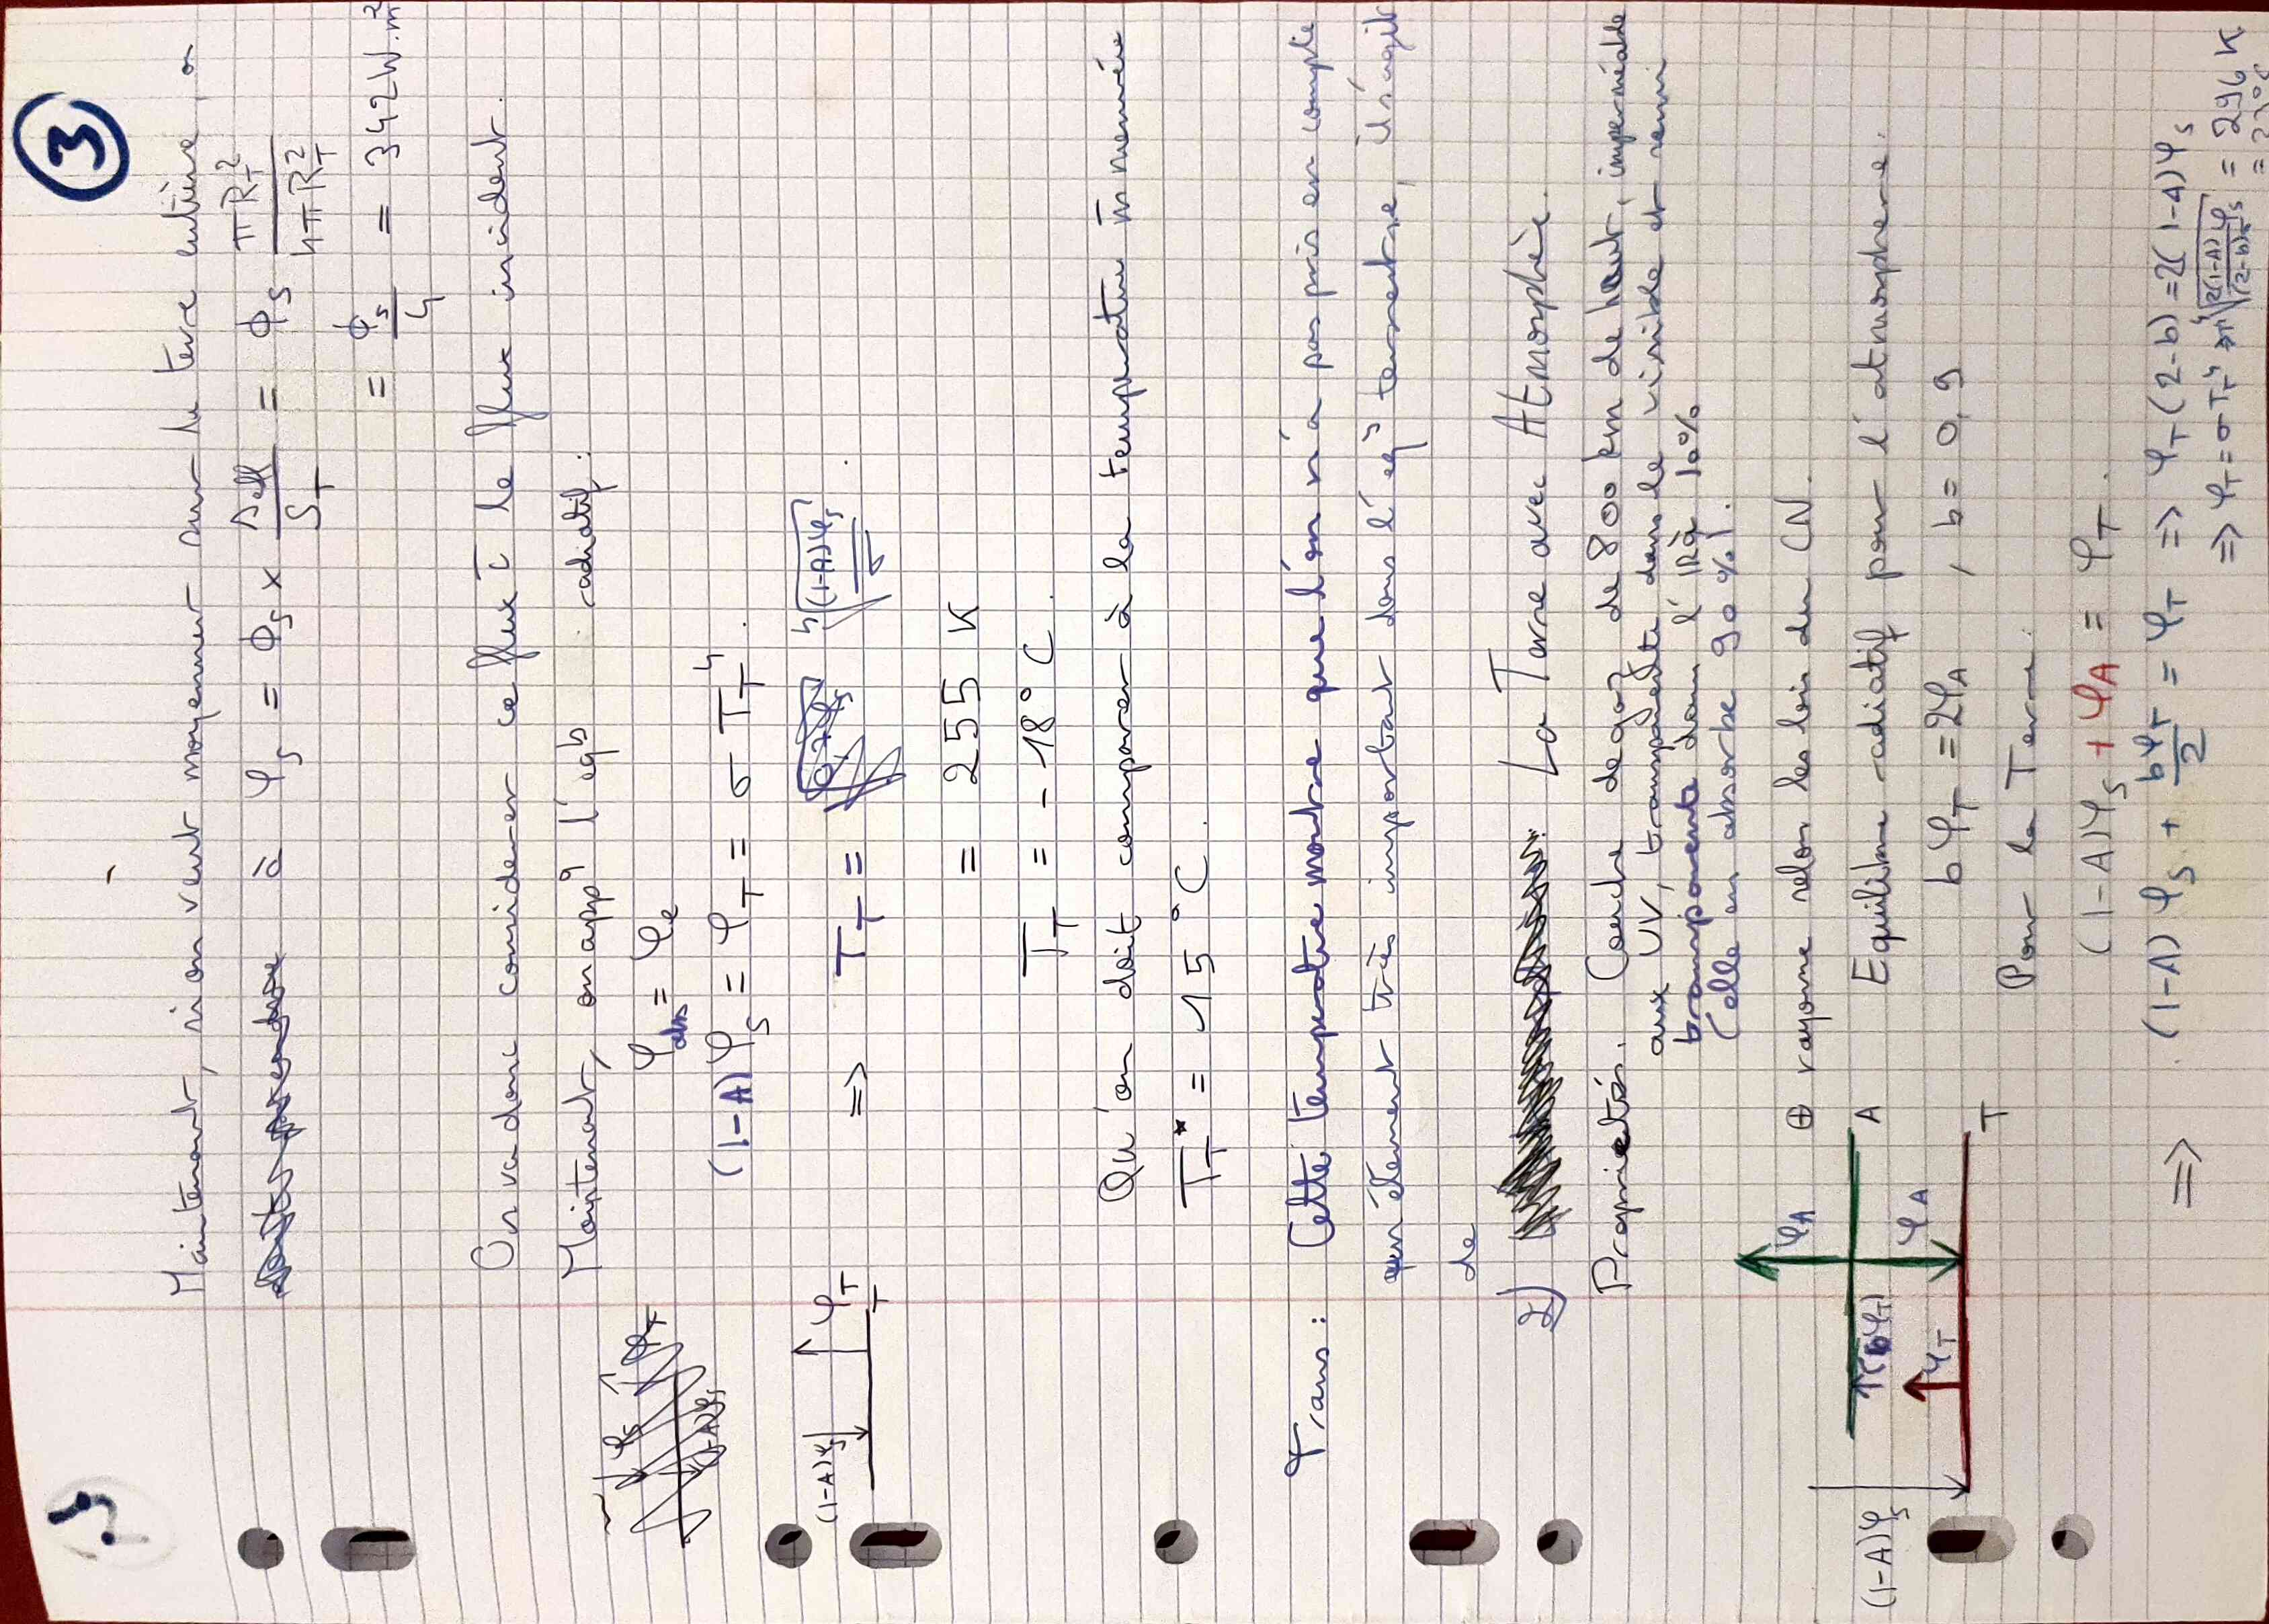 3
Maintenant, si on veut moyenner sur la terre entière, on
à φ_S = ϕ_S × S_eff / S_T = ϕ_S πR_T² / 4πR_T²
= ϕ_S / 4 = 342 W.m⁻²
On va donc considérer ce flux c̄ le flux incident.
Maintenant, on appq l'eqb radiatif :
φ_abs = φ_e
(1-A)φ_S = φ_T = σ T_T⁴.
(1-A)φ_S
φ_T
T
⇒ T_T = ⁴√((1-A)φ_S / σ).
= 255 K
T_T = -18°C.
Qu'on doit comparer à la température m̄ mesurée
T_T* = 15 °C.
Trans : Cette température montre que l'on n'a pas pris en compte
un élément très important dans l'eq° terrestre, il s'agit
de
2) La Terre avec Atmosphère.
Propriétés. Couche de gaz de 800 km de haut, imperméable
aux UV, transparente dans le visible et
transparente dans l'IR à 10%
(elle en absorbe 90%).
⊕ rayonne selon les lois du CN.
Equilibre radiatif pour l'atmosphère.
bφ_T = 2φ_A , b = 0,9
Pour la Terre.
(1-A)φ_S + φ_A = φ_T.
φ_A
A
(bφ_T)
φ_T
φ_A
T
(1-A)φ_S
⇒ (1-A)φ_S + bφ_T / 2 = φ_T ⇒ φ_T(2-b) = 2(1-A)φ_S
⇒ φ_T = σT_T⁴ ⇒ ⁴√(2(1-A)φ_S / (2-b)σ) = 296 K